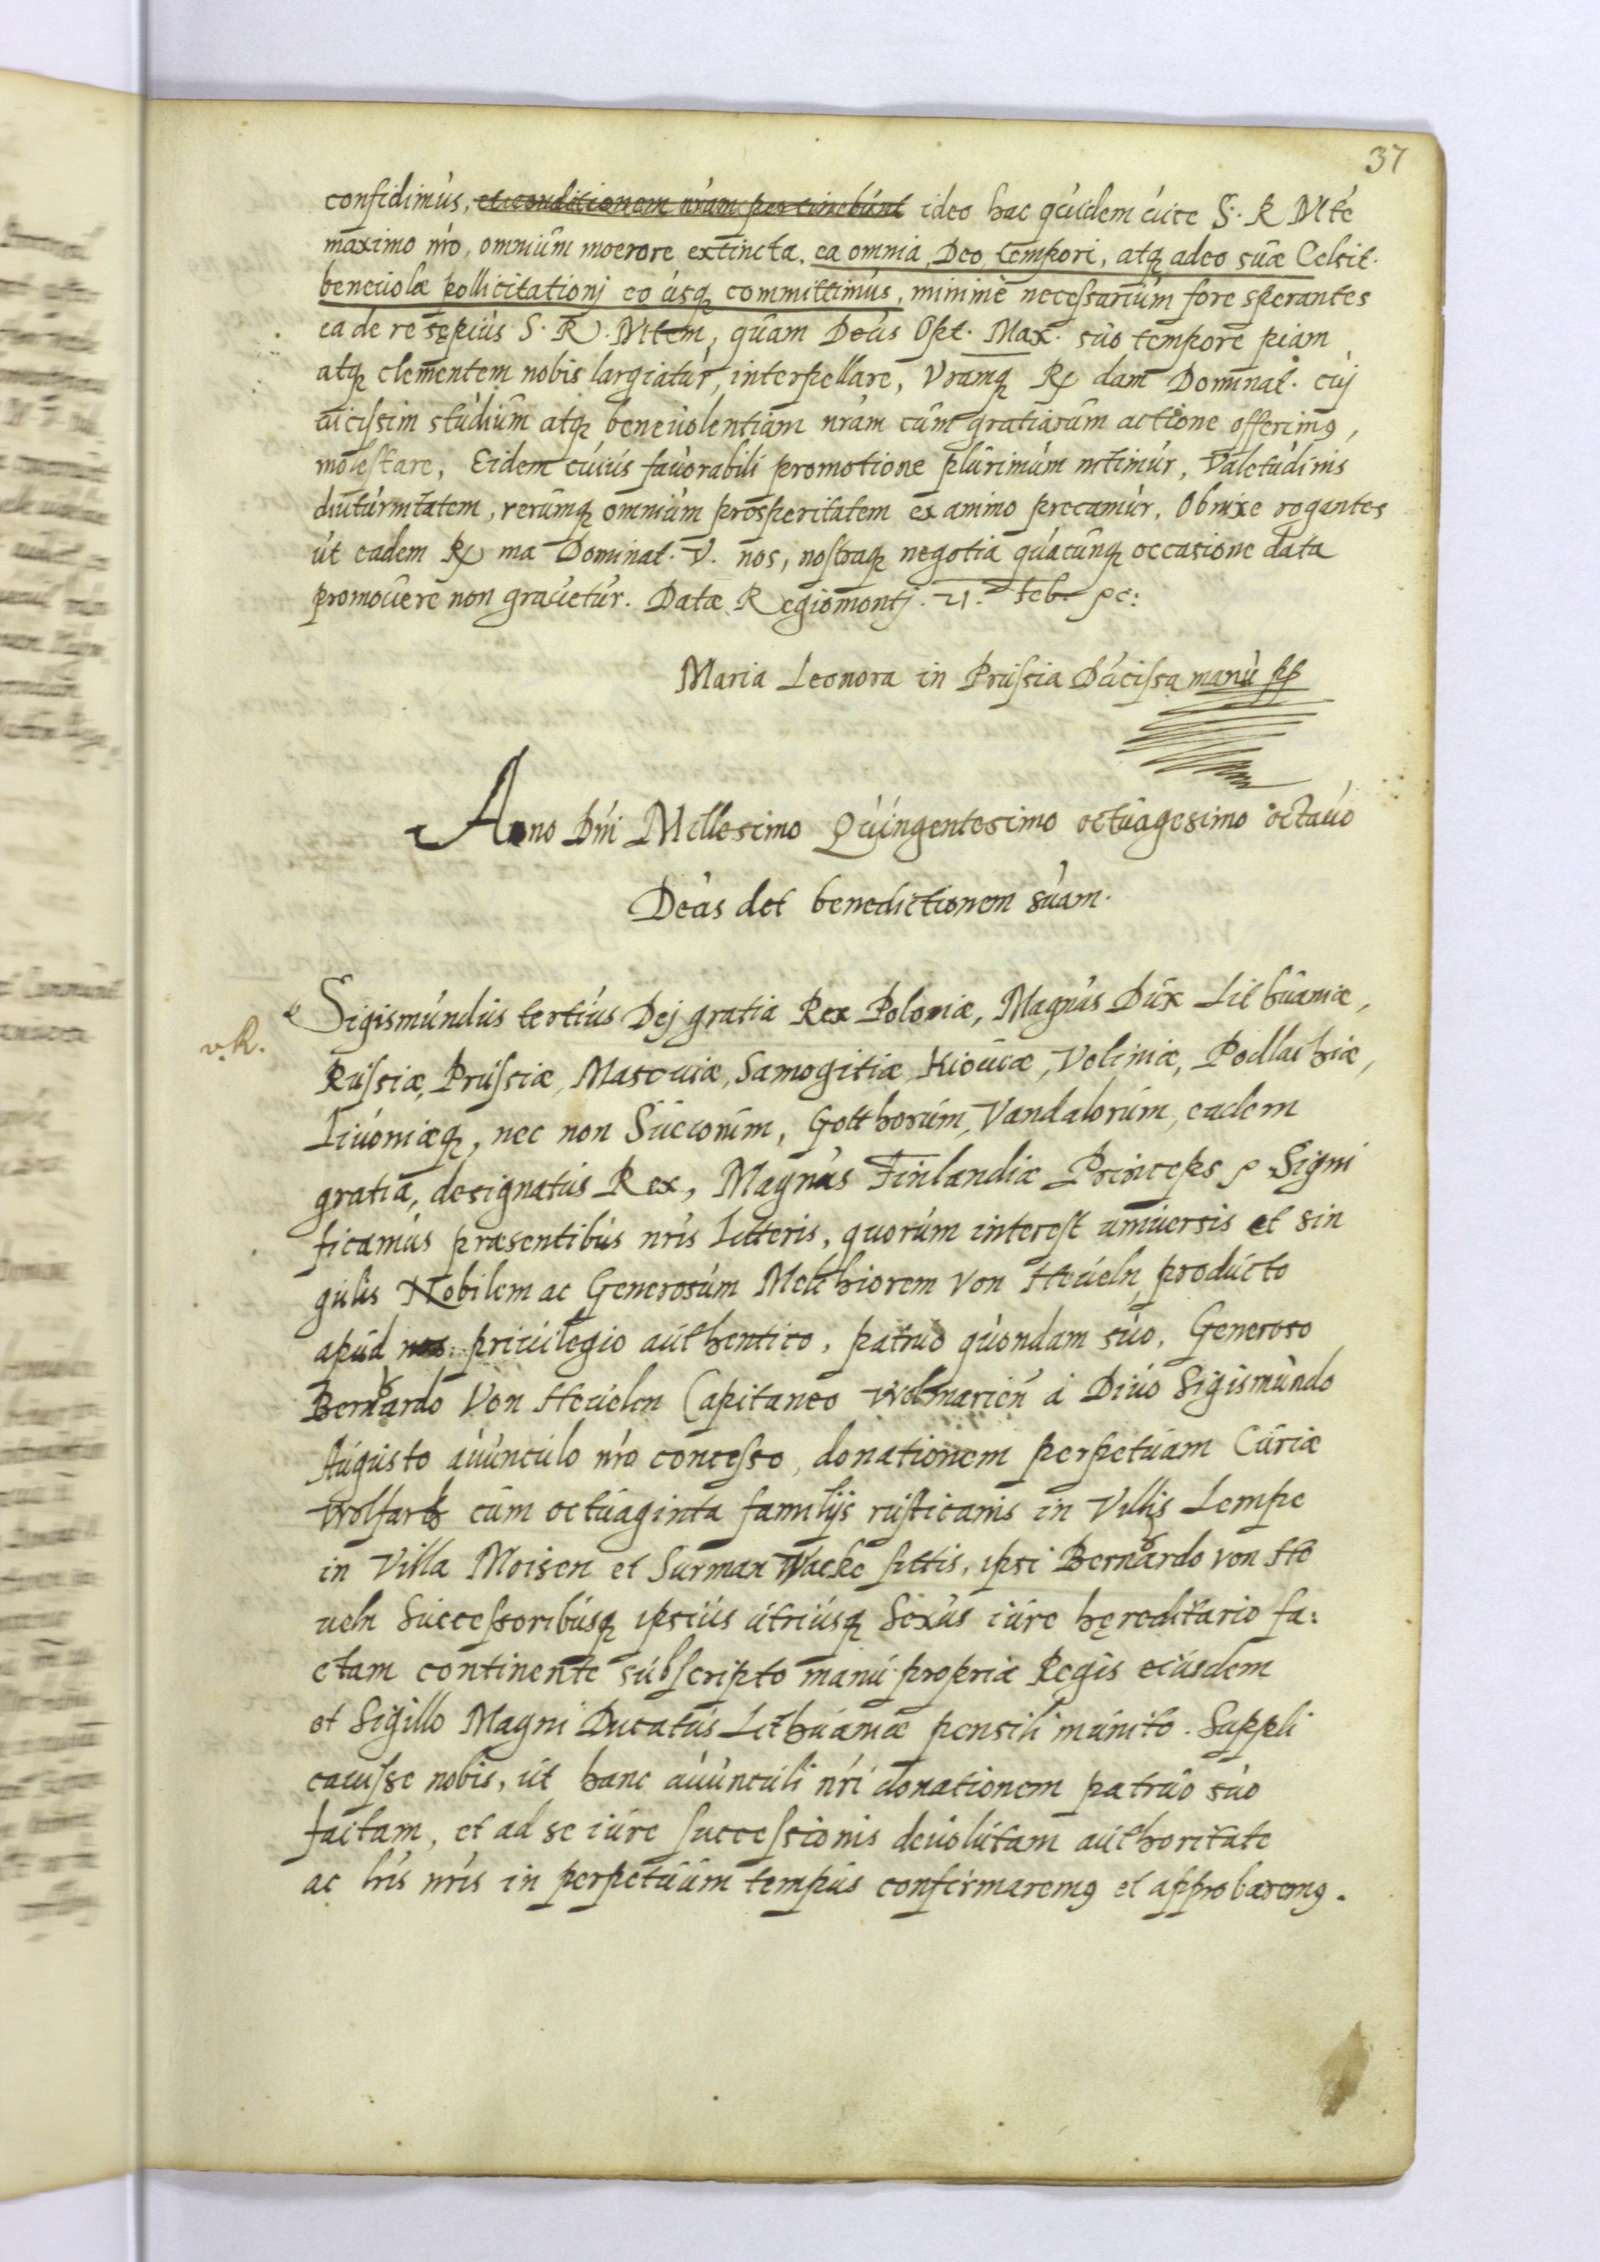 37
confidimus, et conditionem nram pertinebunt ideo hac quidem luce S. R Mte
maximo nro, omnium moerore extincta, ea omnia, Deo, tempori, atq adeo suæ Celsit.
beneuolæ pollicitationj eo usq committimus, minime necessarium fore sperantes
ea de re sępius S. R. Mtem, quam Deus Opt. Max. suo tempore piam
atq clementem nobis largiatur, interpellare, Vramq R dam Dominat. cuj
uicissim studium atq beneuolentiam nram cum gratiarum actione offerimꝰ,
molestare, Eidem cuius fauorabili promotione plurimum nitimur, Valetudinis
diuturnitatem, rerumq omnium prosperitatem ex animo precamur, Obnixe rogantes
ut eadem R ma Dominat. V. nos, nostraq negotia quacunq occasione data
promouere non grauetur. Datæ Regiomontj. 21. Feb. ꝛc:
Maria Leonora in Prussia Ducissa manu pp
Anno Dni Millesimo Quingentesimo octuagesimo octauo
Deus det benedictionem suam.
v. R.
Sigismundus tertius Dej gratia Rex Poloniæ, Magnus Dux Lithuaniæ,
Russiæ, Prussiæ, Masouiæ, Samogitiæ, Kiouiæ, Voliniæ, Podlachiæ,
Liuoniæq, nec non Suecorum, Gotthorum, Vandalorum, eadem
gratia, designatus Rex, Magnus Finlandiæ Princeps ꝛ Signi
ficamus præsentibus nris Litteris, quorum interest uniuersis et sin
gulis Nobilem ac Generosum Melchiorem von Heueln, producto
apud nos priuilegio authentico, patruo quondam suo, Generoso
Bernardo Von Heuelen Capitaneo Wolmarien à Diuo Sigismundo
Augusto auunculo nro concesso, donationem perpetuam Curiæ
Wolfart cum octuaginta familijs rusticanis in Villis Lempe
in Villa Moisen et Surman Wacke sittis, ipsi Bernardo von He
ueln Successoribusq ipsius utriusq Sexus iure hęreditario fa:
ctam continente subscripto manu propria Regis eiusdem
et Sigillo Magni Ducatus Lithuaniæ pensili munito. Suppli
cauisse nobis, ut hanc auunculi nri donationem patruo suo
factam, et ad se iure successionis deuolutam authoritate
ac lris nris in perpetuum tempus confirmaremꝰ et approbaremꝰ.